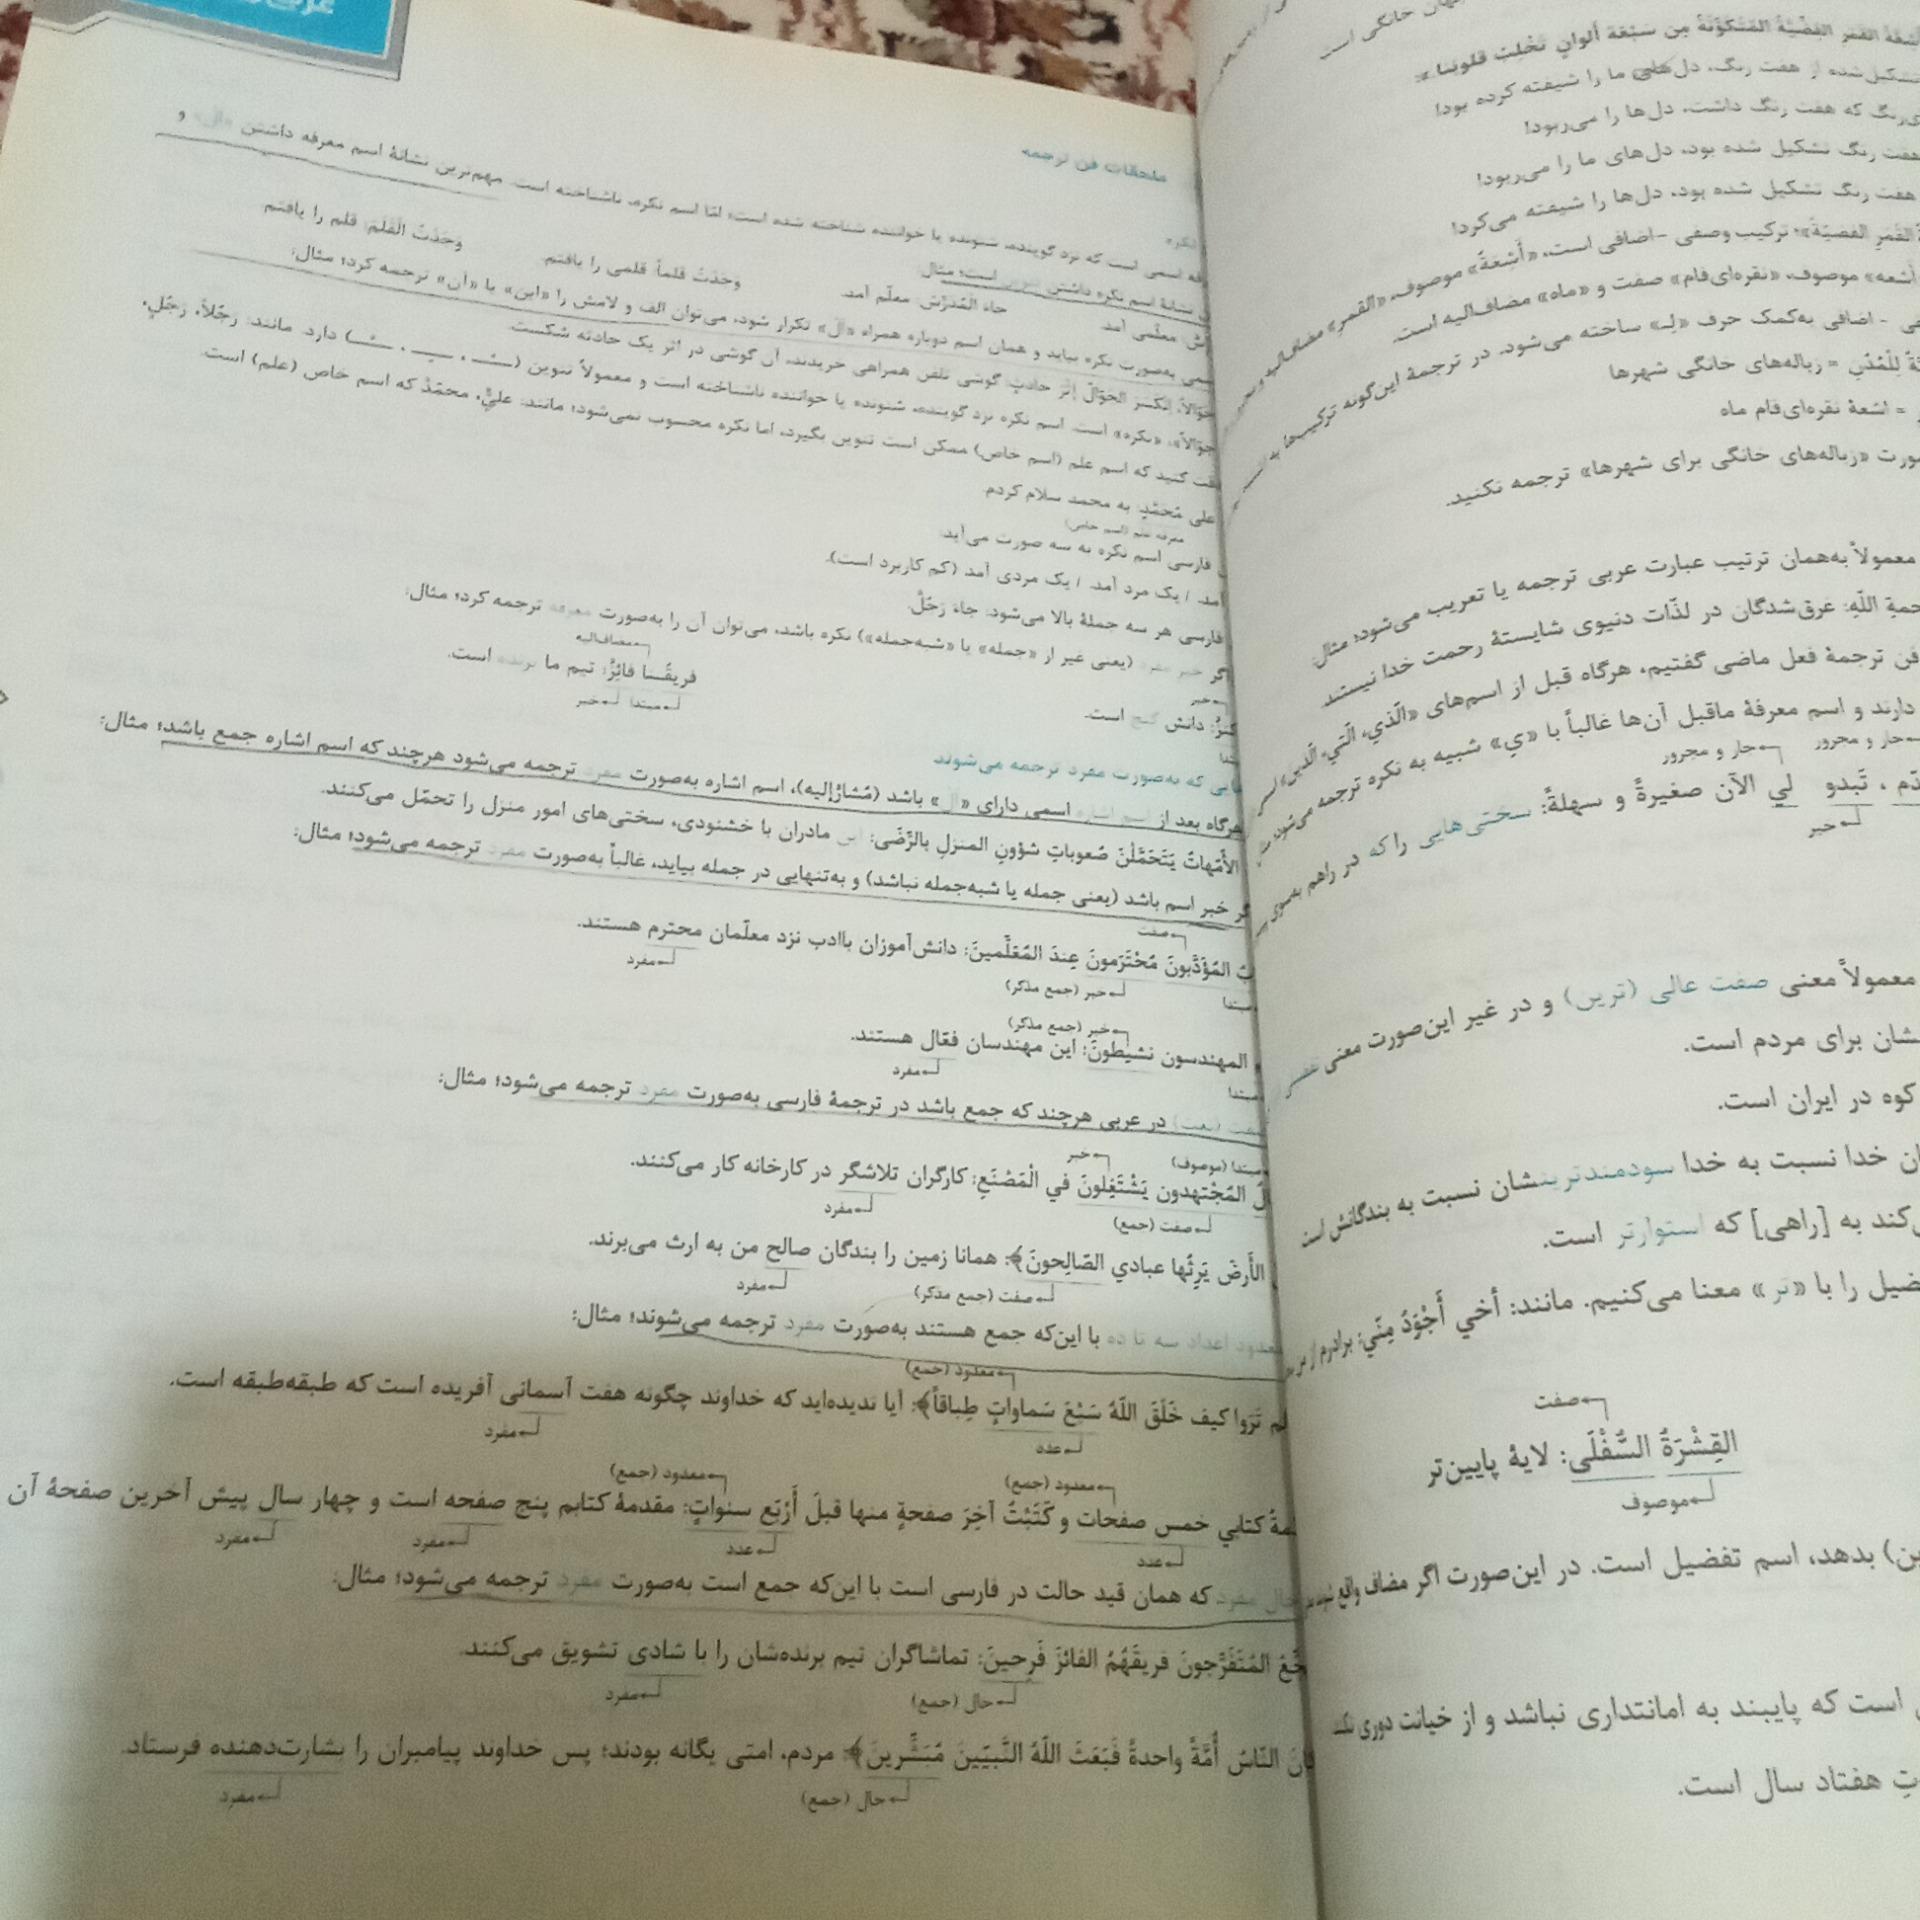 ملحقات فن ترجمه
اسمی است که نزد گوینده، شنونده یا خواننده شناخته شده است؛ امّا اسم نکره، ناشناخته است. مهم‌ترین نشانهٔ اسم معرفه داشتن «ال» و
نشانهٔ اسم نکره داشتن تنوین است؛ مثال:
وَجَدْتُ قلماً: قلمی را یافتم. وَجَدْتُ الْقَلَمَ: قلم را یافتم.
معلّمی آمد. جاءَ الْمُدَرِّسُ: معلّم آمد.
به‌صورت نکره بیاید و همان اسم دوباره همراه «ال» تکرار شود، می‌توان الف و لامش را «این» یا «آن» ترجمه کرد؛ مثال:
جوّالاً، اِنْکَسَرَ الجَوّالُ إثْرَ حادثٍ: گوشی تلفن همراهی خریدند، آن گوشی در اثر یک حادثه شکست.
جوّالاً»، «نکره» است. اسم نکره نزد گوینده، شنونده یا خواننده ناشناخته است و معمولاً تنوین (ــًـ ، ــٍـ ، ــٌـ) دارد. مانند: رجُلاً، رَجُلٍ،
کنید که اسم علم (اسم خاص) ممکن است تنوین بگیرد، اما نکره محسوب نمی‌شود؛ مانند: عليٌّ، محمّدٌ که اسم خاص (علم) است.
علی مُحَمَّدٍ: به محمد سلام کردم.
معرفه علم (اسم خاص)
فارسی اسم نکره به سه صورت می‌آید:
آمد. / یک مرد آمد. / یک مردی آمد (کم کاربرد است).
فارسی هر سه جملهٔ بالا می‌شود: جاءَ رَجُلٌ.
خبر مفرد (یعنی غیر از «جمله» یا «شبه‌جمله») نکره باشد، می‌توان آن را به‌صورت معرفه ترجمه کرد؛ مثال:
مضاف‌الیه
دانش گنج است. فریقُنا فائِزٌ: تیم ما برنده است.
خبر مبتدا خبر
که به‌صورت مفرد ترجمه می‌شوند
هرگاه بعد از اسم اشاره اسمی دارای «ال» باشد (مُشارٌإلیه)، اسم اشاره به‌صورت مفرد ترجمه می‌شود هرچند که اسم اشاره جمع باشد؛ مثال:
الأُمّهاتُ یَتَحَمَّلْنَ صُعوباتِ شؤونِ المنزلِ بِالرِّضَی: این مادران با خشنودی، سختی‌های امور منزل را تحمّل می‌کنند.
خبر اسم باشد (یعنی جمله یا شبه‌جمله نباشد) و به‌تنهایی در جمله بیاید، غالباً به‌صورت مفرد ترجمه می‌شود؛ مثال:
صفت
المُؤَدَّبونَ مُحْتَرَمونَ عِندَ المُعَلِّمینَ: دانش‌آموزان باادب نزد معلّمان محترم هستند.
مبتدا خبر (جمع مذکر) مفرد
خبر (جمع مذکر)
المهندسون نشیطونَ: این مهندسان فعّال هستند.
مبتدا مفرد
در عربی هرچند که جمع باشد در ترجمهٔ فارسی به‌صورت مفرد ترجمه می‌شود؛ مثال:
مبتدا (موصوف) خبر
المُجْتهدون یَشْتَغِلونَ في الْمَصْنَعِ: کارگران تلاشگر در کارخانه کار می‌کنند.
صفت (جمع) مفرد
الأَرضَ یَرِثُها عبادي الصّالِحونَ﴾: همانا زمین را بندگان صالح من به ارث می‌برند.
صفت (جمع مذکر) مفرد
معدود اعداد سه تا ده با این‌که جمع هستند به‌صورت مفرد ترجمه می‌شوند؛ مثال:
معدود (جمع)
تَرَوا کیف خَلَقَ اللّهُ سَبْعَ سَماواتٍ طِباقاً﴾: آیا ندیده‌اید که خداوند چگونه هفت آسمانی آفریده است که طبقه‌طبقه است.
عدد مفرد
معدود (جمع) معدود (جمع)
کتابي خمس صفحات و کَتَبْتُ آخِرَ صفحةٍ منها قبلَ أَرْبَعِ سنواتٍ: مقدمهٔ کتابم پنج صفحه است و چهار سال پیش آخرین صفحهٔ آن
عدد عدد مفرد مفرد
حال مفرد که همان قید حالت در فارسی است با این‌که جمع است به‌صورت مفرد ترجمه می‌شود؛ مثال:
المُتَفَرِّجونَ فریقَهُمُ الفائزَ فَرِحینَ: تماشاگران تیم برنده‌شان را با شادی تشویق می‌کنند.
حال (جمع) مفرد
النّاسُ أُمَّةً واحدةً فَبَعَثَ اللّهُ النَّبیّینَ مُبَشِّرینَ﴾: مردم، امتی یگانه بودند؛ پس خداوند پیامبران را بشارت‌دهنده فرستاد.
حال (جمع) مفرد
خانگی است
أشعّةُ القَمَرِ الفِضّیَّةُ المُتَکَوِّنَةُ مِن سَبْعَة ألوانٍ
تشکیل‌شده از هفت رنگ، دل‌های ما را شیفته کرده بود!
که هفت رنگ داشت، دل‌ها را می‌ربود!
هفت رنگ تشکیل شده بود، دل‌های ما را می‌ربود!
هفت رنگ تشکیل شده بود، دل‌ها را شیفته می‌کرد!
ترکیب وصفی - اضافی است، «أَشِعَةُ» موصوف، «القمرِ» مضاف‌الیه و
موصوف، «نقره‌ای‌فام» صفت و «ماه» مضاف‌الیه است.
- اضافی به‌کمک حرف «لِـ» ساخته می‌شود. در ترجمهٔ این‌گونه ترکیب‌ها
لِلْمُدُنِ = زباله‌های خانگی شهرها
= اشعهٔ نقره‌ای‌فام ماه
«زباله‌های خانگی برای شهرها» ترجمه نکنید.
معمولاً به‌همان ترتیب عبارت عربی ترجمه یا تعریب می‌شود؛ مثال:
اللّهِ: غرق‌شدگان در لذّات دنیوی شایستهٔ رحمت خدا نیستند
فن ترجمهٔ فعل ماضی گفتیم، هرگاه قبل از اسم‌های «الّذي، الّتي، الّذین»
دارند و اسم معرفهٔ ماقبل آن‌ها غالباً با «ي» شبیه به نکره ترجمه می‌شود
جار و مجرور جار و مجرور
تَبدو لي الآن صغیرةً و سهلةً: سختی‌هایی را که در راهم به‌سوی
خبر
معمولاً معنی صفت عالی (ترین) و در غیر این‌صورت معنی
برای مردم است.
کوه در ایران است.
خدا نسبت به خدا سودمندترینشان نسبت به بندگانش است
به [راهی] که استوارتر است.
را با «تر» معنا می‌کنیم. مانند: أخي أَجْوَدُ مِنّي: برادرم از من
صفت
القِشْرَةُ السُّفْلَی: لایهٔ پایین‌تر
موصوف
بدهد، اسم تفضیل است. در این‌صورت اگر مضاف واقع شود
است که پایبند به امانتداری نباشد و از خیانت دوری نکند
هفتاد سال است.